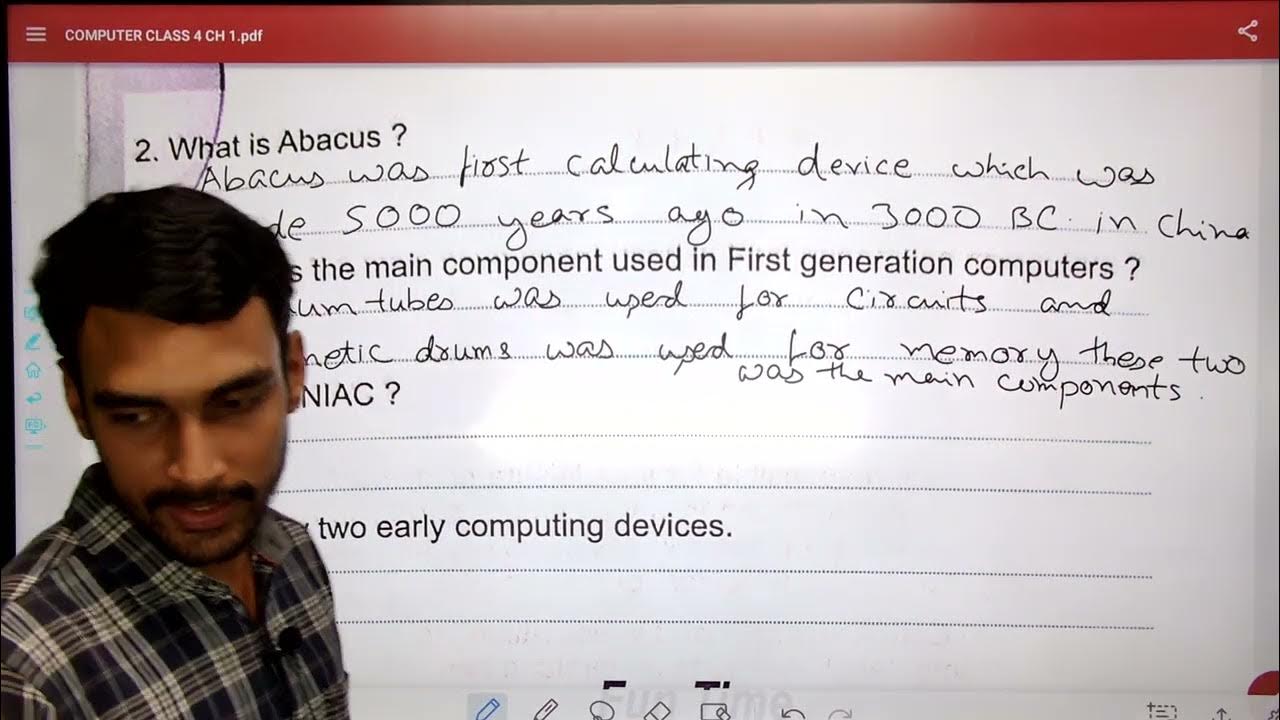 COMPUTER CLASS 4 CH 1.pdf
2. What is Abacus ?
Abacus was first calculating device which was
de 5000 years ago in 3000 BC. in China
s the main component used in First generation computers ?
um tubes was used for circuits and
netic drums was used for memory these two
was the main components.
NIAC ?
two early computing devices.
Fun Time